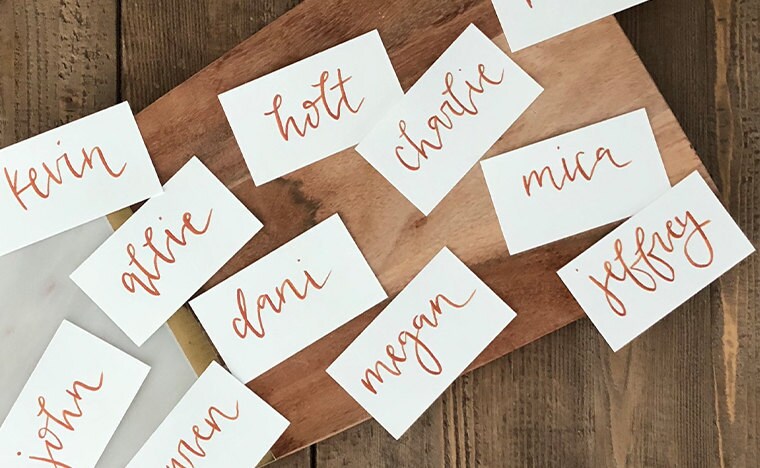 holt
charlie
kevin
mica
allie
jeffrey
dani
megan
john